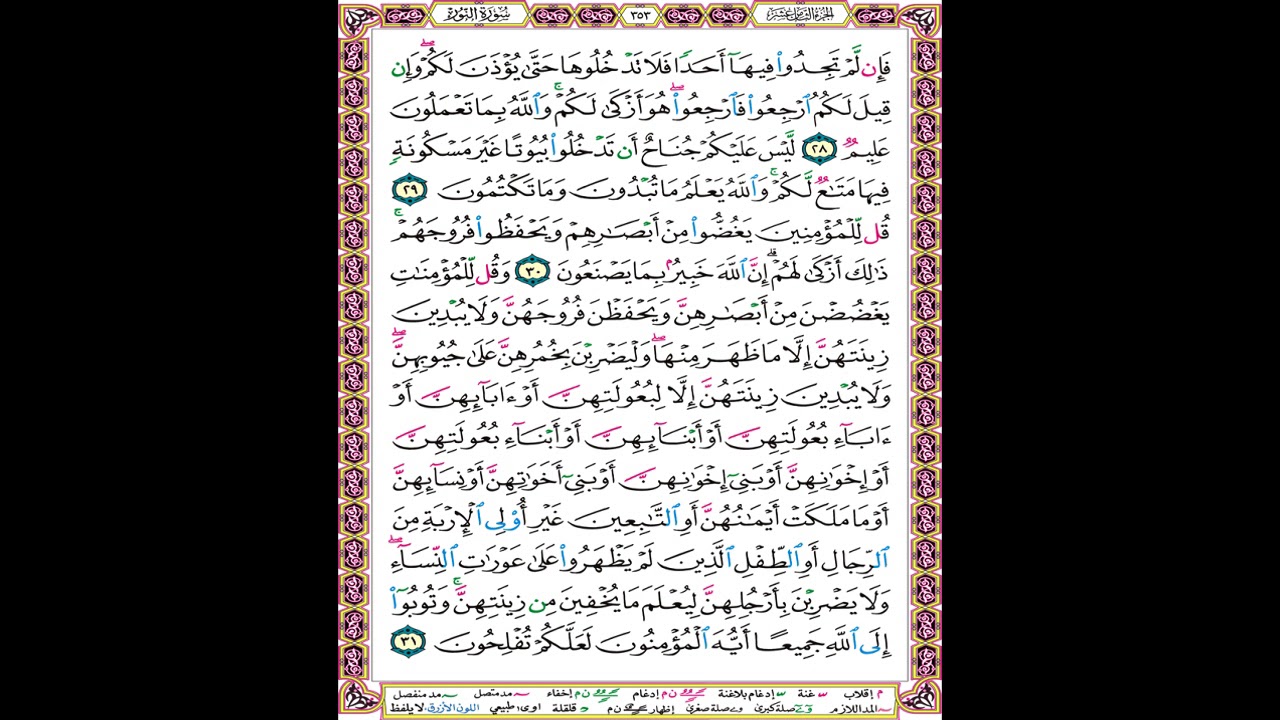 الجزء الثامن عشر
٣٥٣
سُورَةُ النُّورِ
فَإِن لَّمْ تَجِدُوا۟ فِيهَآ أَحَدًا فَلَا تَدْخُلُوهَا حَتَّىٰ يُؤْذَنَ لَكُمْ ۖ وَإِن
قِيلَ لَكُمُ ٱرْجِعُوا۟ فَٱرْجِعُوا۟ ۖ هُوَ أَزْكَىٰ لَكُمْ ۚ وَٱللَّهُ بِمَا تَعْمَلُونَ
عَلِيمٌ ٢٨ لَّيْسَ عَلَيْكُمْ جُنَاحٌ أَن تَدْخُلُوا۟ بُيُوتًا غَيْرَ مَسْكُونَةٍ
فِيهَا مَتَٰعٌ لَّكُمْ ۚ وَٱللَّهُ يَعْلَمُ مَا تُبْدُونَ وَمَا تَكْتُمُونَ ٢٩
قُل لِّلْمُؤْمِنِينَ يَغُضُّوا۟ مِنْ أَبْصَٰرِهِمْ وَيَحْفَظُوا۟ فُرُوجَهُمْ ۚ
ذَٰلِكَ أَزْكَىٰ لَهُمْ ۗ إِنَّ ٱللَّهَ خَبِيرٌۢ بِمَا يَصْنَعُونَ ٣٠ وَقُل لِّلْمُؤْمِنَٰتِ
يَغْضُضْنَ مِنْ أَبْصَٰرِهِنَّ وَيَحْفَظْنَ فُرُوجَهُنَّ وَلَا يُبْدِينَ
زِينَتَهُنَّ إِلَّا مَا ظَهَرَ مِنْهَا ۖ وَلْيَضْرِبْنَ بِخُمُرِهِنَّ عَلَىٰ جُيُوبِهِنَّ ۖ
وَلَا يُبْدِينَ زِينَتَهُنَّ إِلَّا لِبُعُولَتِهِنَّ أَوْ ءَابَآئِهِنَّ أَوْ
ءَابَآءِ بُعُولَتِهِنَّ أَوْ أَبْنَآئِهِنَّ أَوْ أَبْنَآءِ بُعُولَتِهِنَّ
أَوْ إِخْوَٰنِهِنَّ أَوْ بَنِىٓ إِخْوَٰنِهِنَّ أَوْ بَنِىٓ أَخَوَٰتِهِنَّ أَوْ نِسَآئِهِنَّ
أَوْ مَا مَلَكَتْ أَيْمَٰنُهُنَّ أَوِ ٱلتَّٰبِعِينَ غَيْرِ أُو۟لِى ٱلْإِرْبَةِ مِنَ
ٱلرِّجَالِ أَوِ ٱلطِّفْلِ ٱلَّذِينَ لَمْ يَظْهَرُوا۟ عَلَىٰ عَوْرَٰتِ ٱلنِّسَآءِ ۖ
وَلَا يَضْرِبْنَ بِأَرْجُلِهِنَّ لِيُعْلَمَ مَا يُخْفِينَ مِن زِينَتِهِنَّ ۚ وَتُوبُوٓا۟
إِلَى ٱللَّهِ جَمِيعًا أَيُّهَ ٱلْمُؤْمِنُونَ لَعَلَّكُمْ تُفْلِحُونَ ٣١
م إقلاب غنة إدغام بلاغنة ن م إدغام ن م إخفاء مد متصل مد منفصل
المد اللازم صلة كبرى صلة صغرى إظهار ن م قلقلة اوى: طبيعي اللون الأزرق: لا يلفظ